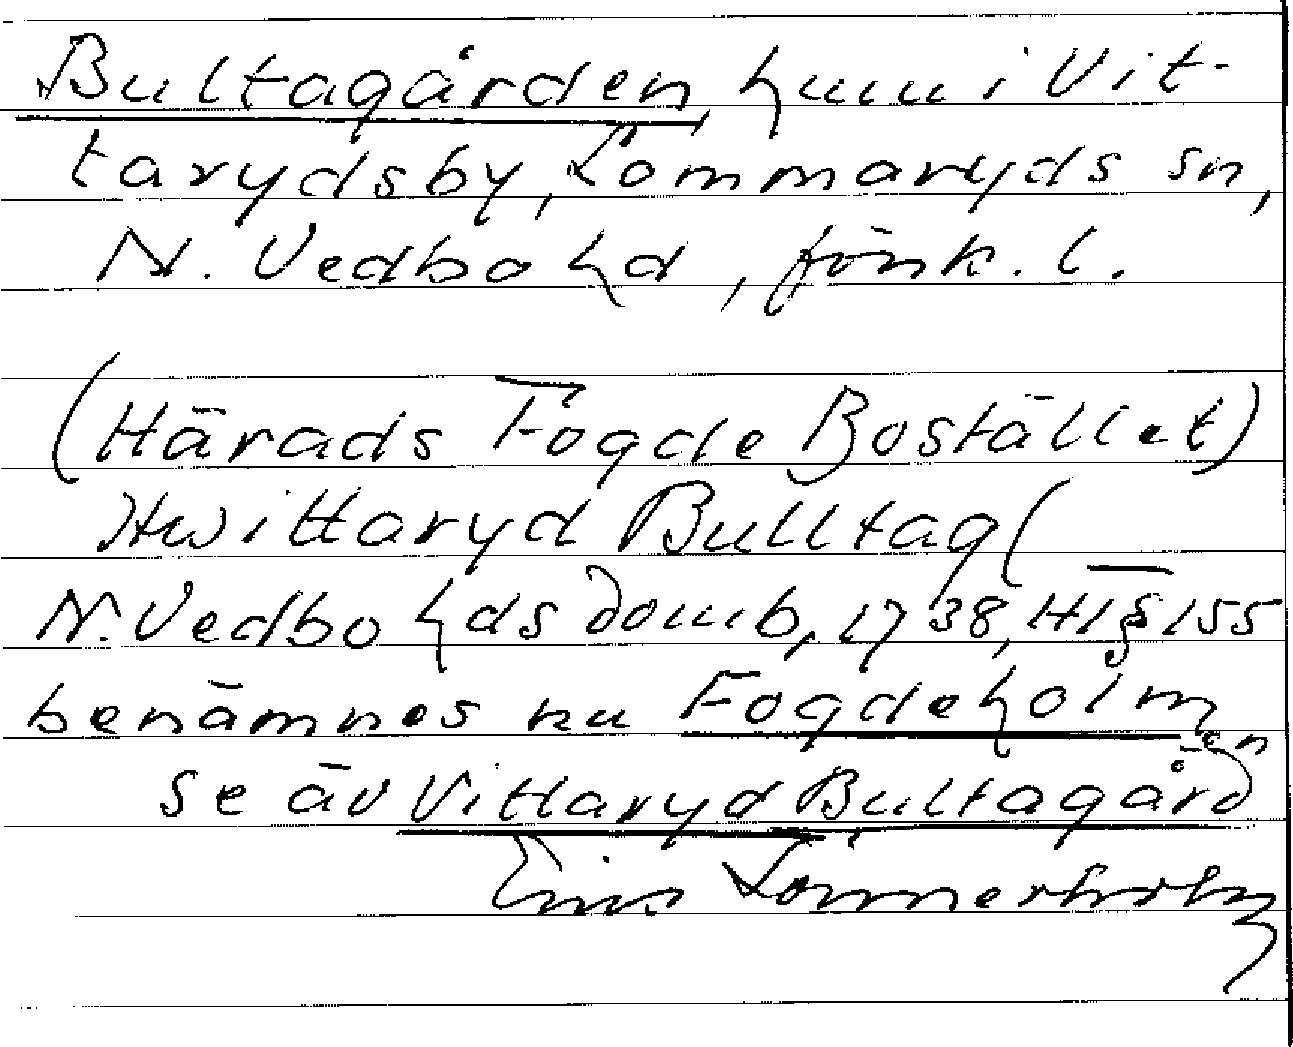 Bultagården, hmn i Vit-
tarydsby, Lommaryds sn,
N. Vedbo hd, Jönk. l.
(Härads Fogde Bostället)
Hwittaryd Bulltag(
N. Vedbo hds domb, 1738, HT § 155
benämnes nu Fogdeholmen
se äv Vittaryd Bultagård
Lönnerholm